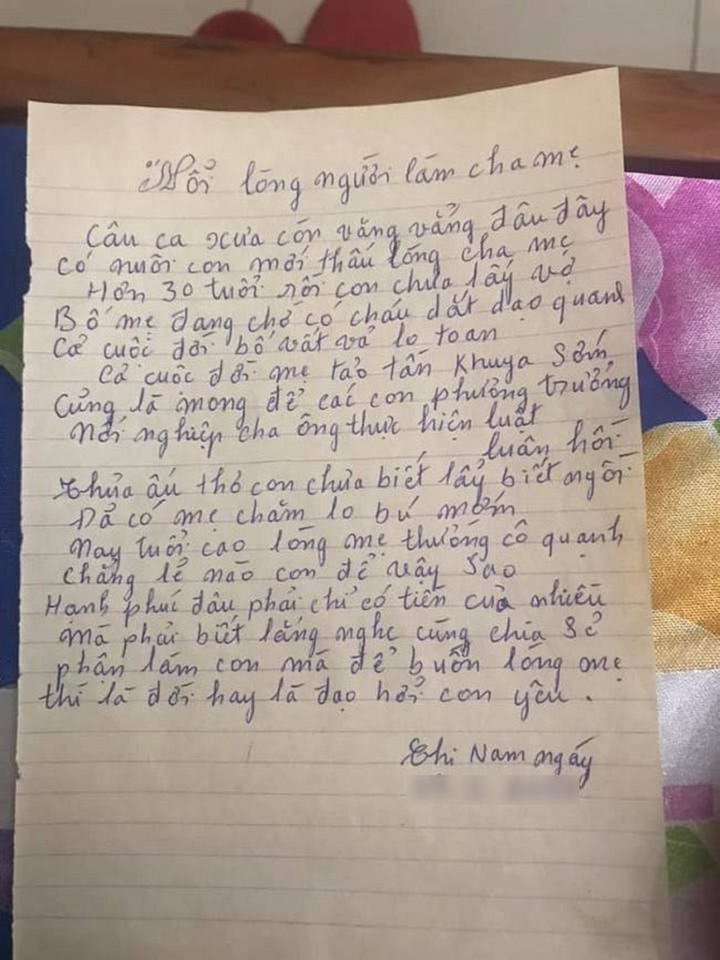 "Nổi lòng người làm cha mẹ
Câu ca xưa còn văng vẳng đâu đây
có nuôi con mới thấu lòng cha mẹ
Hơn 30 tuổi rồi con chưa lấy vợ
Bố mẹ đang chờ có cháu dắt dạo quanh
Cả cuộc đời bố vất vả lo toan
Cả cuộc đời mẹ tảo tần khuya sớm
Củng là mong để các con phương trưởng
Nối nghiệp cha ông thực hiện luật
luân hồi
thủa ấu thơ con chưa biết lẩy biết ngồi
Đả có mẹ chăm lo bú mớm
Nay tuổi cao lòng mẹ thường cô quạnh
chẳng lẻ nào con để vậy sao
Hạnh phúc đâu phải chỉ có tiền của nhiều
mà phải biết lắng nghe cùng chia sẻ
phận làm con mà để buồn lòng mẹ
thì là đời hay là đạo hởi con yêu.
Chi Nam ngày